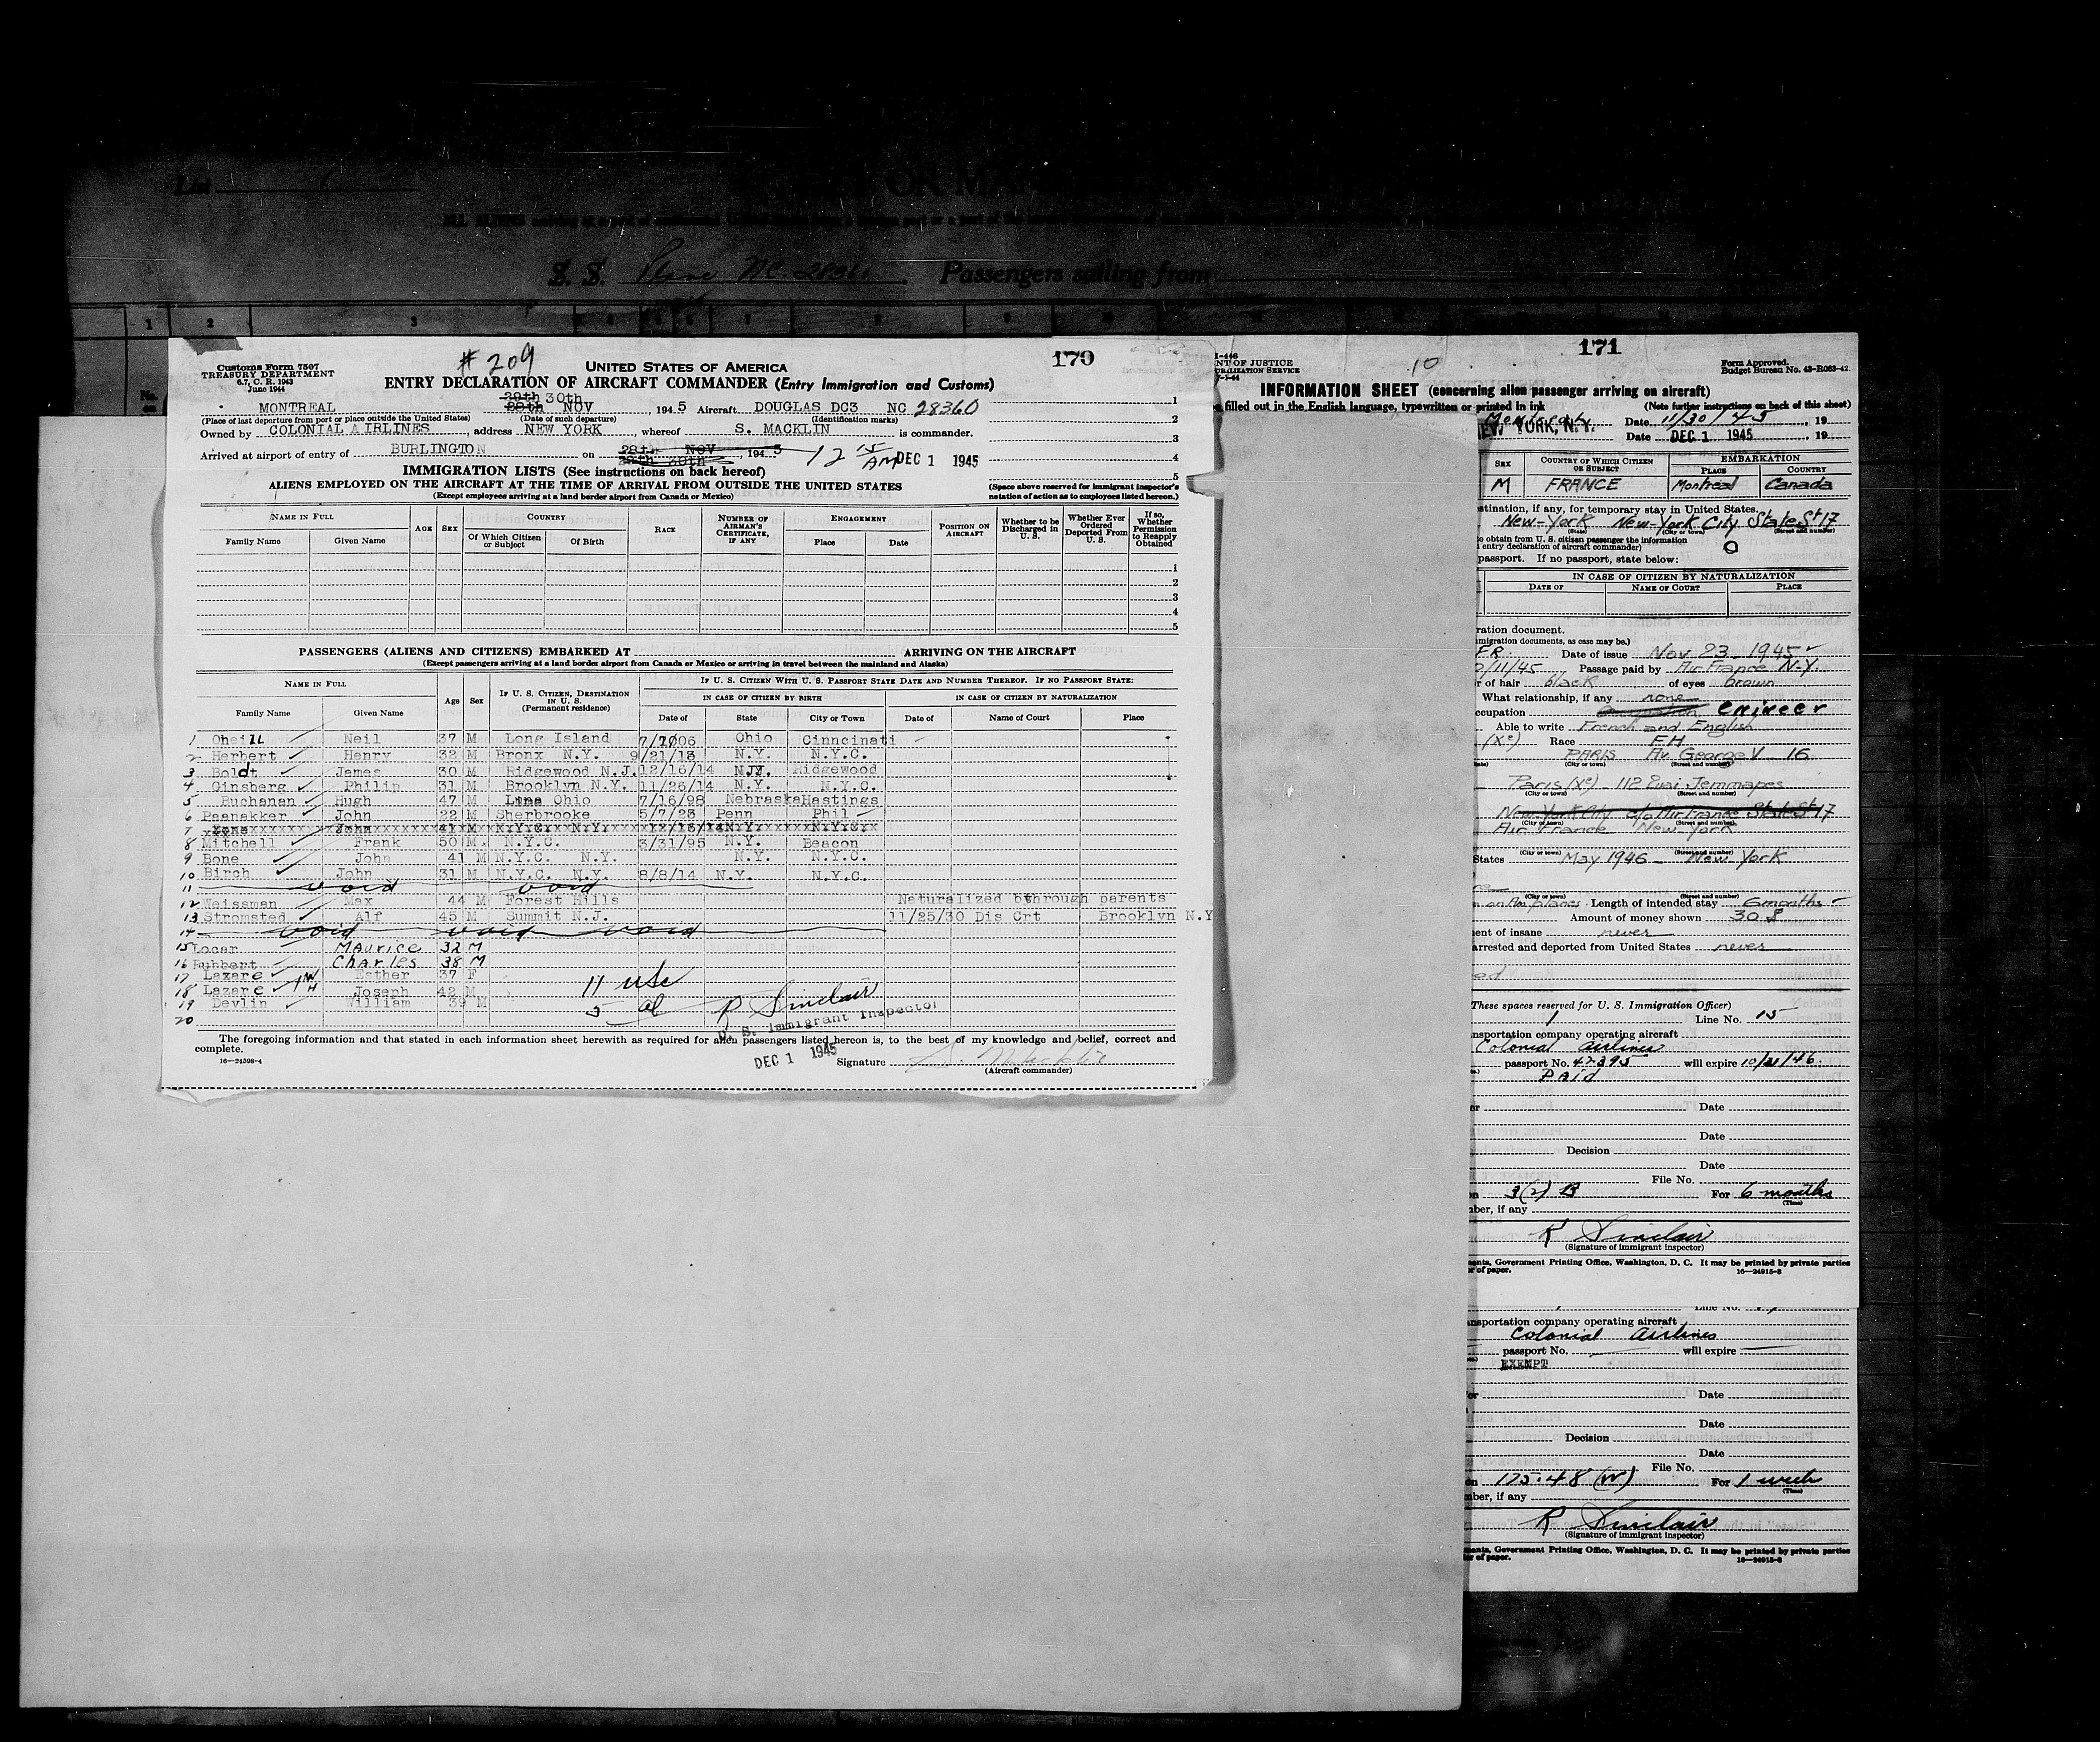 List
S. S. Plane NC 28360 Passengers sailing from
1 2 3 4 5 6 7 8 9
No.
# 209
170
Customs Form 7507
TREASURY DEPARTMENT
6.7, C. R. 1943
June 1944
UNITED STATES OF AMERICA
ENTRY DECLARATION OF AIRCRAFT COMMANDER (Entry Immigration and Customs)
29th 30th
MONTREAL 28th NOV 1945 Aircraft DOUGLAS DC3 NC 28360
(Place of last departure from port or place outside the United States) (Date of such departure) (Identification marks)
Owned by COLONIAL AIRLINES, address NEW YORK whereof S. MACKLIN is commander.
Arrived at airport of entry of BURLINGTON on 28th NOV, 1945 12 15 AM DEC 1 1945
29th 30th
1
2
3
4
5
IMMIGRATION LISTS (See instructions on back hereof)
ALIENS EMPLOYED ON THE AIRCRAFT AT THE TIME OF ARRIVAL FROM OUTSIDE THE UNITED STATES
(Except employees arriving at a land border airport from Canada or Mexico)
(Space above reserved for immigrant inspector's notation of action as to employees listed hereon.)
NAME IN FULL AGE SEX COUNTRY RACE NUMBER OF AIRMAN'S CERTIFICATE, IF ANY ENGAGEMENT POSITION ON AIRCRAFT Whether to be Discharged in U. S. Whether Ever Ordered Deported From U. S. If so, Whether Permission to Reapply Obtained
Family Name Given Name Of Which Citizen or Subject Of Birth Place Date
1
2
3
4
5
PASSENGERS (ALIENS AND CITIZENS) EMBARKED AT ARRIVING ON THE AIRCRAFT
(Except passengers arriving at a land border airport from Canada or Mexico or arriving in travel between the mainland and Alaska)
NAME IN FULL Age Sex IF U. S. CITIZEN, DESTINATION IN U. S. (Permanent residence) IF U. S. CITIZEN WITH U. S. PASSPORT STATE DATE AND NUMBER THEREOF. IF NO PASSPORT STATE:
IN CASE OF CITIZEN BY BIRTH IN CASE OF CITIZEN BY NATURALIZATION
Family Name Given Name Date of State City or Town Date of Name of Court Place
1 Oheill Neil 37 M Long Island Ohio Cinncinati
2 Herbert Henry 32 M Bronx N.Y. 9/21/13 N.Y. N.Y.C.
3 Boldt James 30 M Ridgewood N.J. 12/16/14 N.J. Ridgewood
4 Ginsberg Philip 31 M Brooklyn N.Y. 11/26/14 N.Y. N.Y.C.
5 Buchanan Hugh 47 M Lima Ohio 7/16/98 Nebraska Hastings
6 Paanakker John 22 M Sherbrooke 5/7/23 Penn Phil
7
8 Mitchell Frank 50 M. N.Y.C. 3/31/95 N.Y. Beacon
9 Bone John 41 M N.Y.C. N.Y. N.Y. N.Y.C.
10 Birch John 31 M N.Y.C. N.Y. 8/8/14 N.Y. N.Y.C.
11 void void
12 Weissman Max 44 M Forest Hills Naturalized through parents
13 Stromsted Alf 45 M Summit N.J. 11/25/30 Dis Crt Brooklyn N.Y
14 void void void
15 Locar MAurice 32 M
16 Rubbert CHarles 38 M
17 Lazare W Esther 37 F
18 Lazare H Joseph 42 M 11 usc
19 Devlin William 39 M 5 al R Sinclair
20 U. S. Immigrant Inspector
The foregoing information and that stated in each information sheet herewith as required for alien passengers listed hereon is, to the best of my knowledge and belief, correct and
complete.
16—24598-4 DEC 1 1945 Signature S. Macklin
(Aircraft commander)
171
10
NT OF JUSTICE
Form Approved.
Budget Bureau No. 43-R063-42.
INFORMATION SHEET (concerning alien passenger arriving on aircraft)
filled out in the English language, typewritten or printed in ink (Note further instructions on back of this sheet)
Montreal Date 11/30/45, 19
NEW YORK, N.Y. Date DEC 1 1945, 19
SEX COUNTRY OF WHICH CITIZEN OR SUBJECT EMBARKATION
PLACE COUNTRY
M FRANCE Montreal Canada
stination, if any, for temporary stay in United States.
New-York New-York City State St 17
(State) (City or town) (Street and number)
o obtain from U. S. citizen passenger the information
entry declaration of aircraft commander)
passport. If no passport, state below:
IN CASE OF CITIZEN BY NATURALIZATION
DATE OF NAME OF COURT PLACE
ration document.
mmigration documents, as case may be.)
Date of issue Nov. 23_1945
/11/45 Passage paid by Air France N-Y.
r of hair black of eyes brown
What relationship, if any none
ccupation engineer
Able to write French and English
(Xe) Race FH
PARIS Av. George V 16
(City or town) (Street and number)
Paris (Xe) _ 112 Quai Jemmapes
(City or town) (Street and number)
New York City c/o Air France State St 17
(City or town) (Street and number)
Air France New York
States May 1946 _ New York
(City or town) (Street and number)
Length of intended stay 6 months
Amount of money shown 30 $
ent of insane never
arrested and deported from United States never
(These spaces reserved for U. S. Immigration Officer)
1 Line No. 15
nsportation company operating aircraft
Colonial Airlines
passport No. 42395 will expire 10/21/46.
Paid
Date
Date
Decision
Date
File No.
3(2) B For 6 months
(Time)
ber, if any
R Sinclair
(Signature of immigrant inspector)
ents, Government Printing Office, Washington, D. C. It may be printed by private parties
r of paper. 16—24915-3
Line No.
nsportation company operating aircraft
Colonial Airlines
passport No. will expire
EXEMPT
Date
Date
Decision
Date
File No.
175.48 (W) For 1 week
(Time)
ber, if any
R Sinclair
(Signature of immigrant inspector)
ents, Government Printing Office, Washington, D. C. It may be printed by private parties
r of paper. 16—24915-3